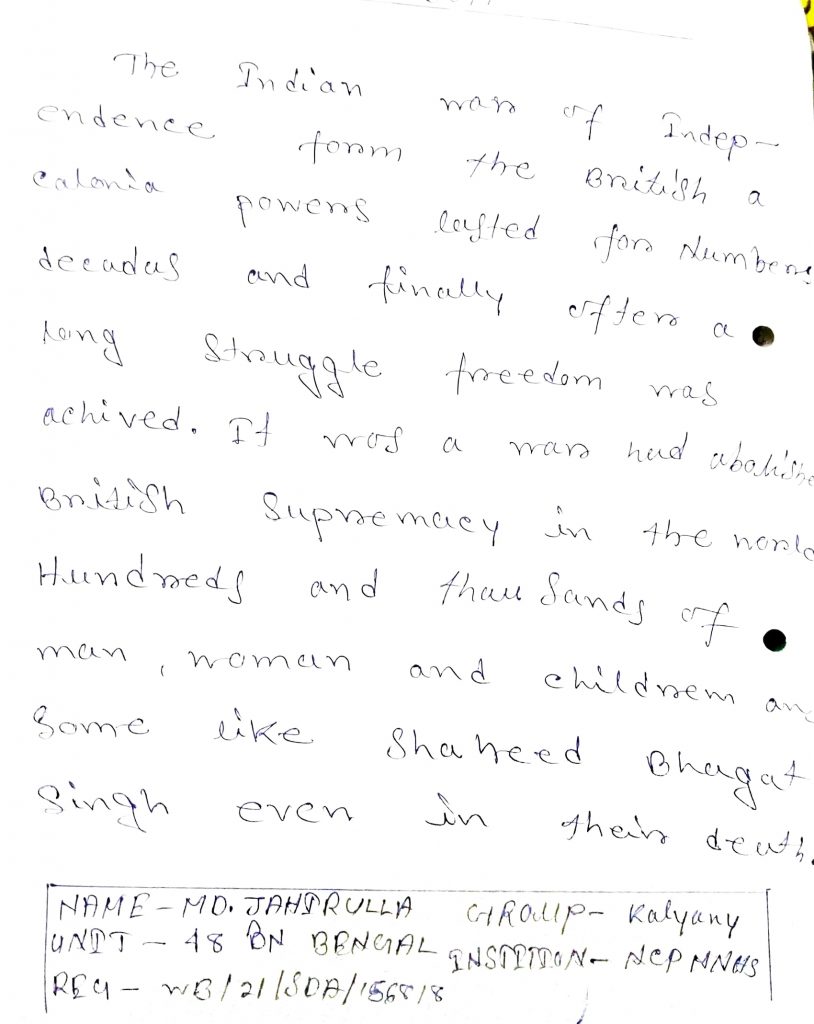 The Indian war of Indep-
endence form the British a
calonia powers lasted for Numbers
decadas and finally after a
long Struggle freedom was
achived. It was a war had abolishe
British Supremacy in the world
Hundreds and thausands of
man, woman and childrem an
Some like Shaheed Bhagat
Singh even in their death.
NAME - MD. JAHIRULLA GROUP- Kalyany
UNIT - 48 BN BENGAL INSTITION- NCP MNHS
REG - WB/21/SDA/156818